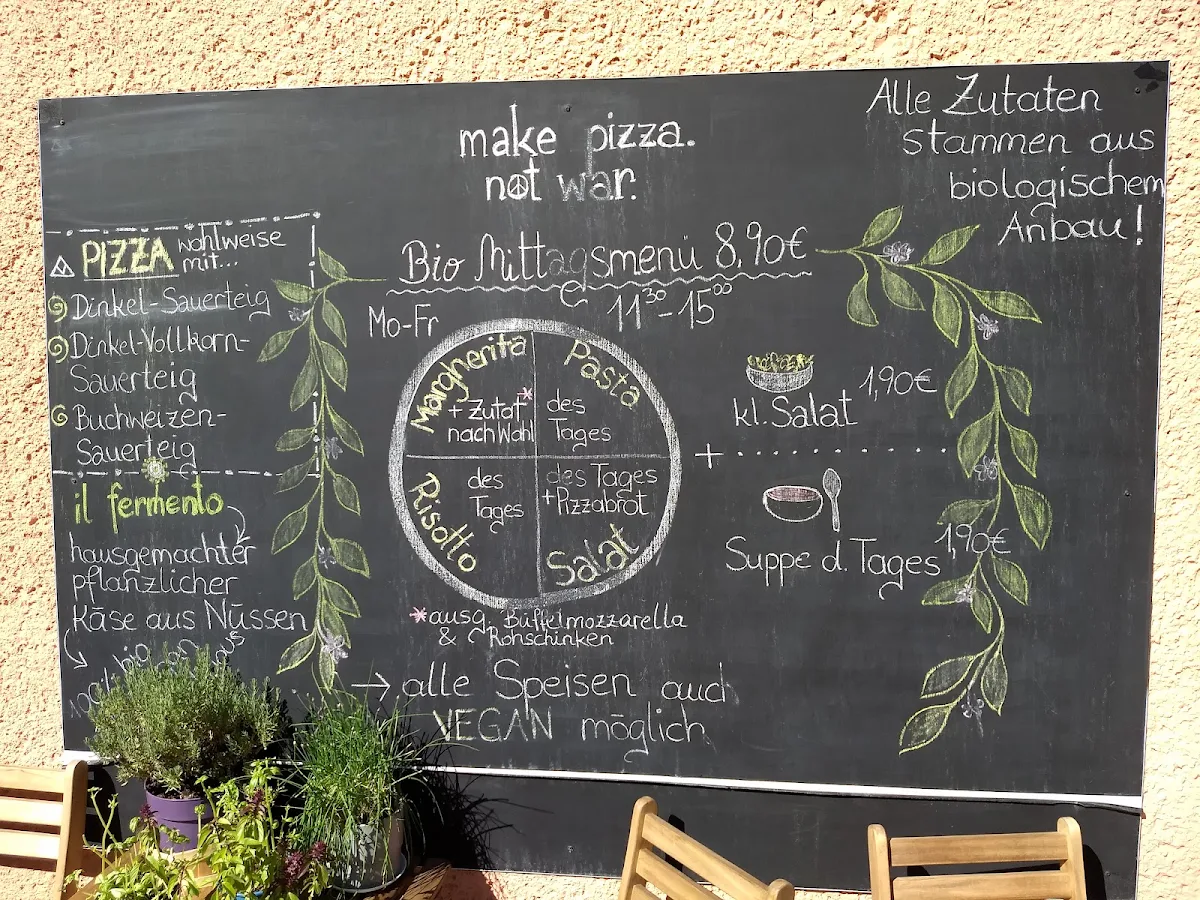 make pizza.
not war.
Alle Zutaten
stammen aus
biologischem
Anbau!
PIZZA wahlweise
mit...
Dinkel-Sauerteig
Dinkel-Vollkorn-
Sauerteig
Buchweizen-
Sauerteig
il fermento
hausgemachter
pflanzlicher
Käse aus Nüssen
Bio Mittagsmenü 8,90€
Mo-Fr
11³⁰-15⁰⁰
Margherita
+ Zutat*
nach Wahl
Pasta
des
Tages
Risotto
des
Tages
des Tages
+Pizzabrot
Salat
*ausg. Büffelmozzarella
& Rohschinken
→ alle Speisen auch
VEGAN möglich
kl. Salat 1,90€
+
Suppe d. Tages 1,90€